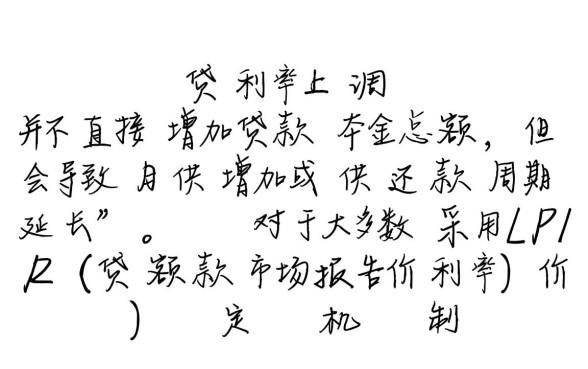 贷利率上调
并不直接增加贷款本金总额，但
会导致月供增加或供还款周期
延长”。 对于大多数采用LPI
R（贷额款市场报告价利率）价
） 定 机 制